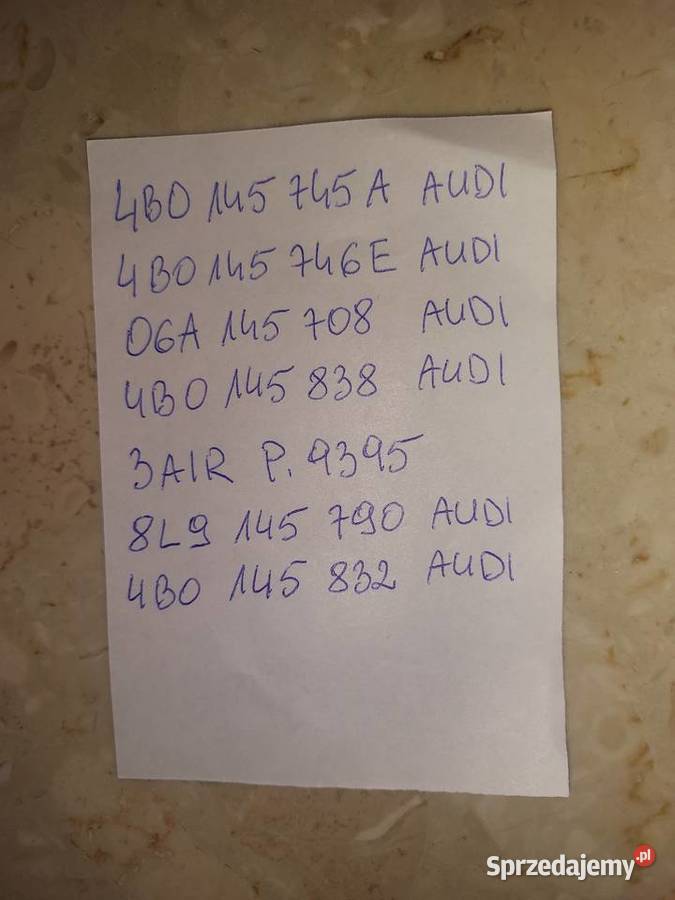 4B0 145 745 A AUDI
4B0 145 746 E AUDI
06A 145 708 AUDI
4B0 145 838 AUDI
3AIR P. 9395
8L9 145 790 AUDI
4B0 145 832 AUDI
Sprzedajemy.pl